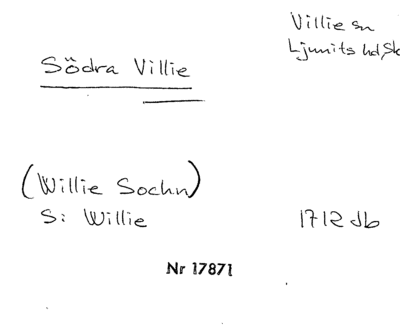 Villie sn
Ljunits hd, Sk
Södra Villie
(Willie Sochn)
S: Willie
1712 Jb
Nr 17871